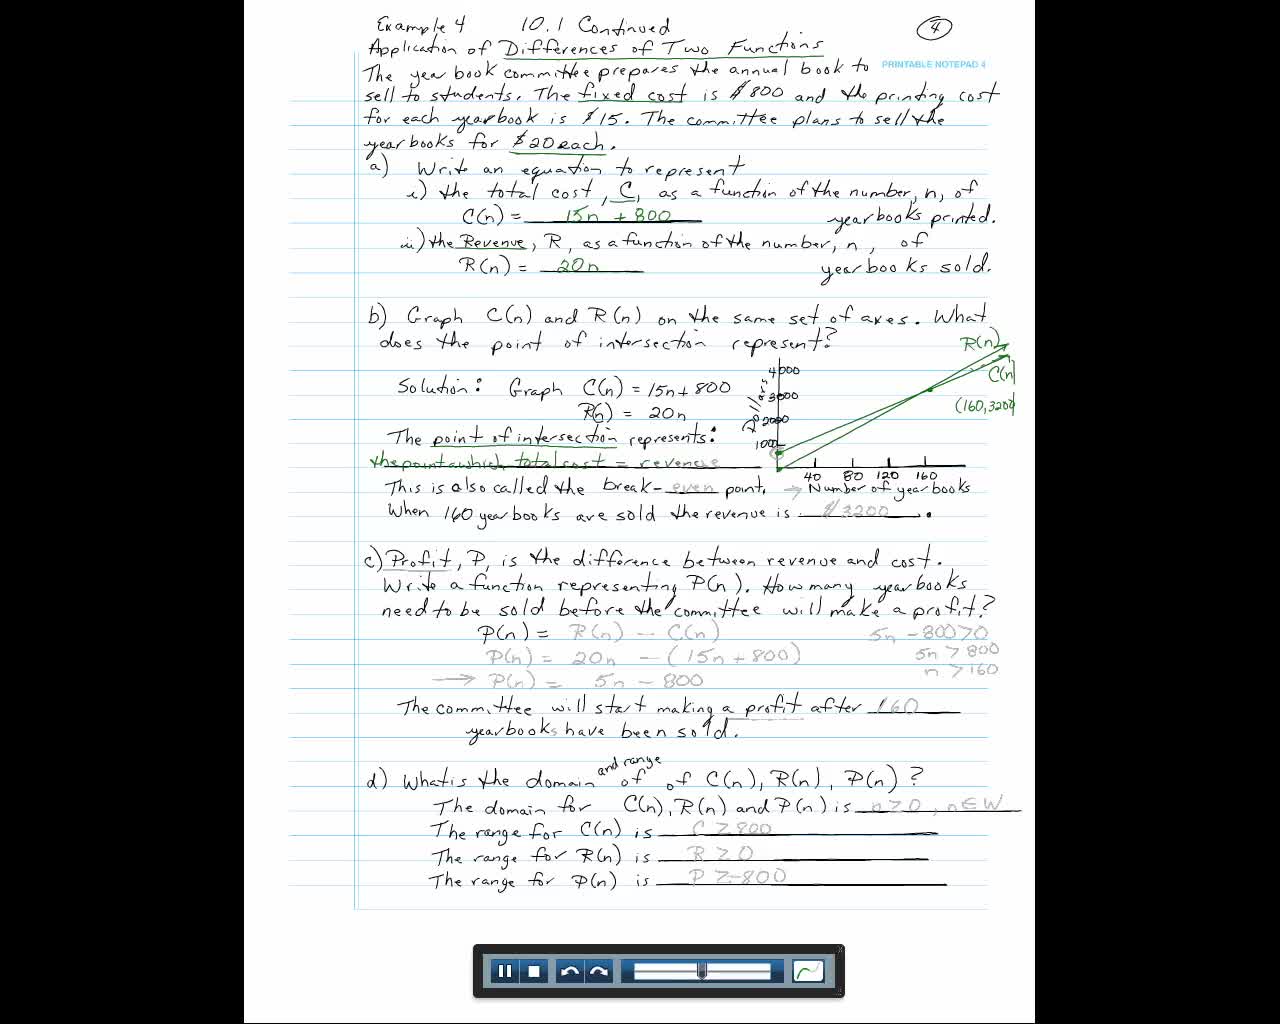 Example 4 10.1 Continued 4
Application of Differences of Two Functions
PRINTABLE NOTEPAD 4
The year book committee prepares the annual book to
sell to students. The fixed cost is $800 and the printing cost
for each yearbook is $15. The committee plans to sell the
yearbooks for $20 each.
a) Write an equation to represent
i) the total cost, C, as a function of the number, n, of
C(n) = 15n + 800 yearbooks printed.
ii) the Revenue, R, as a function of the number, n, of
R(n) = 20n yearbooks sold.
b) Graph C(n) and R(n) on the same set of axes. What
does the point of intersection represent?
R(n)
C(n)
(160,3200)
4000
3000
2000
1000
Dollars
40 80 120 160
Solution: Graph C(n) = 15n + 800
R(n) = 20n
The point of intersection represents:
the point at which total cost = revenue
This is also called the break-even point. → Number of year books
When 160 yearbooks are sold the revenue is $3200.
c) Profit, P, is the difference between revenue and cost.
Write a function representing P(n). How many yearbooks
need to be sold before the committee will make a profit?
P(n) = R(n) - C(n) 5n - 800 > 0
P(n) = 20n - (15n + 800) 5n > 800
→ P(n) = 5n - 800 n > 160
The committee will start making a profit after 160
yearbooks have been sold.
d) What is the domain and range of of C(n), R(n), P(n)?
The domain for C(n), R(n) and P(n) is n ≥ 0, n ∈ W
The range for C(n) is C ≥ 800
The range for R(n) is R ≥ 0
The range for P(n) is P ≥ -800